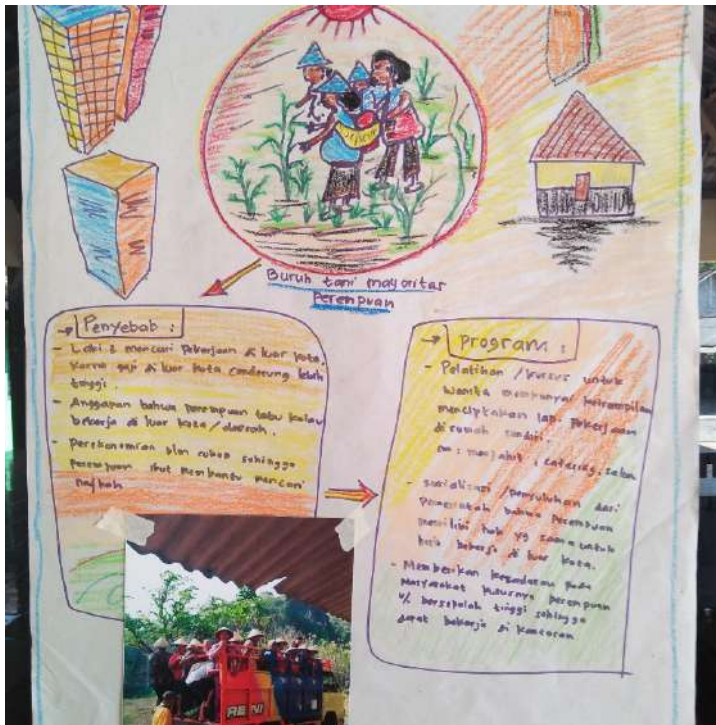 Buruh tani mayoritas
Perempuan
Penyebab :
- Laki 2 mencari Pekerjaan di luar kota,
karna gaji di luar kota cenderung lebih
tinggi.
- Anggapan bahwa perempuan tabu kalau
bekerja di luar kota/daerah.
- Perekonomian blm cukup sehingga
perempuan ikut membantu mencari
nafkah
Program :
- Pelatihan / kursus untuk
wanita mempunyai ketrampilan
menciptakan lap. Pekerjaan
di rumah sendiri.
: menjahit, catering, salon
- sosialisasi / penyuluhan dari
Pemerintah bahwa Perempuan
memiliki hak yg sama untuk
bekerja di luar kota.
- Memberikan kesadaran pada
Masyarakat khususnya perempuan
u/ bersekolah tinggi sehingga
dapat bekerja di kantoran
RENI